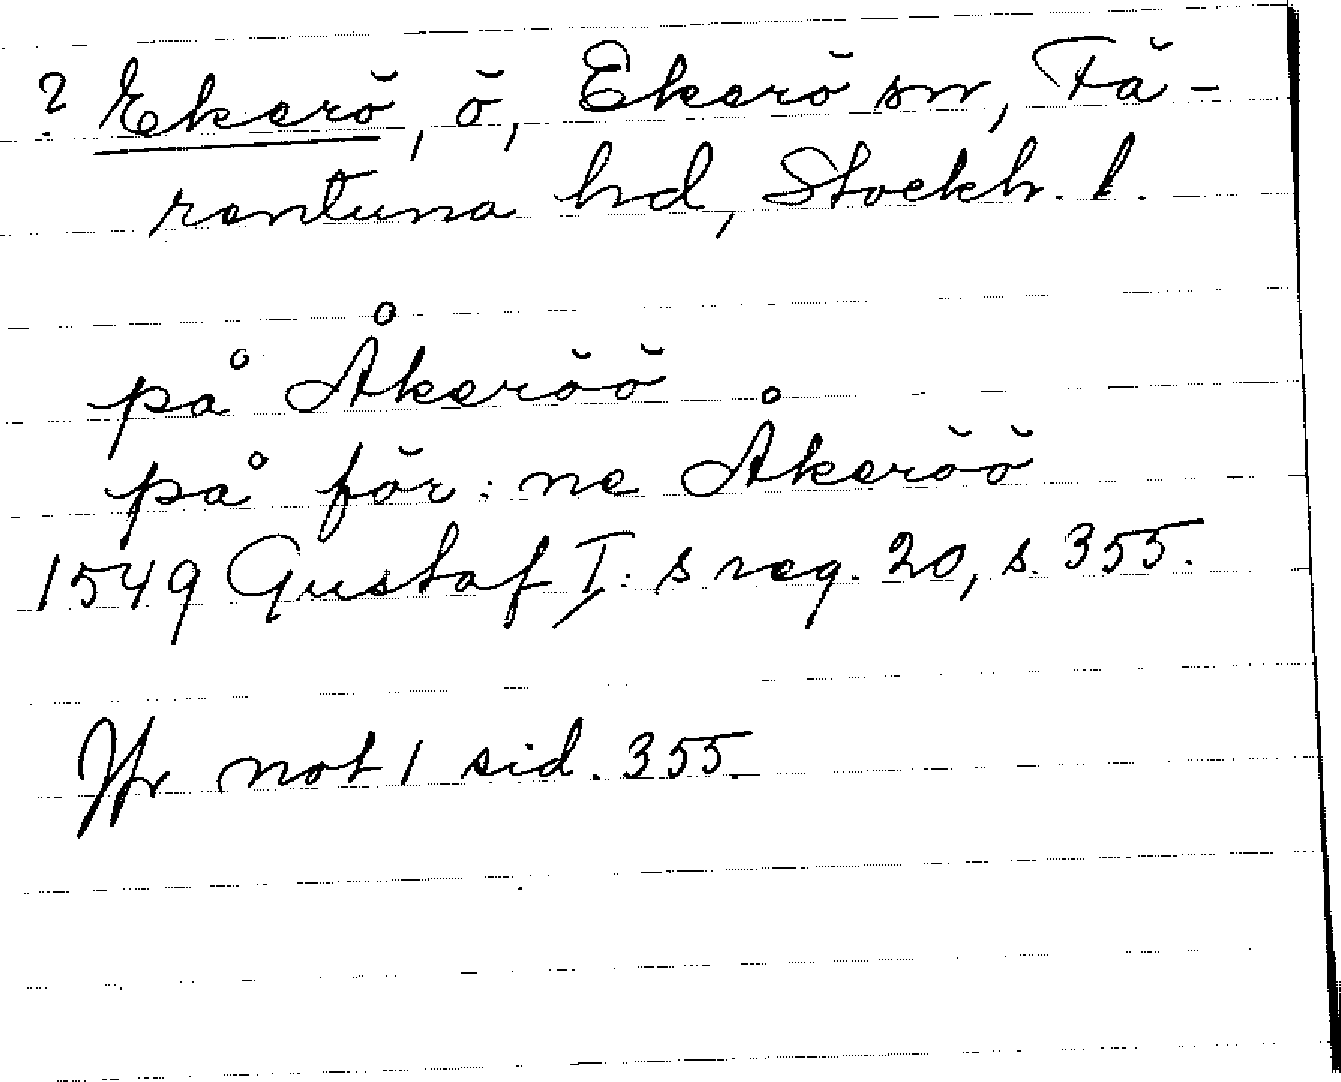 ? Ekerö, ö, Ekerö sn, Fä-
rentuna hd, Stockh. l.
på Åkeröö
på för: ne Åkeröö
1549 Gustaf I: s reg. 20, s. 355.
Jfr not 1 sid. 355.